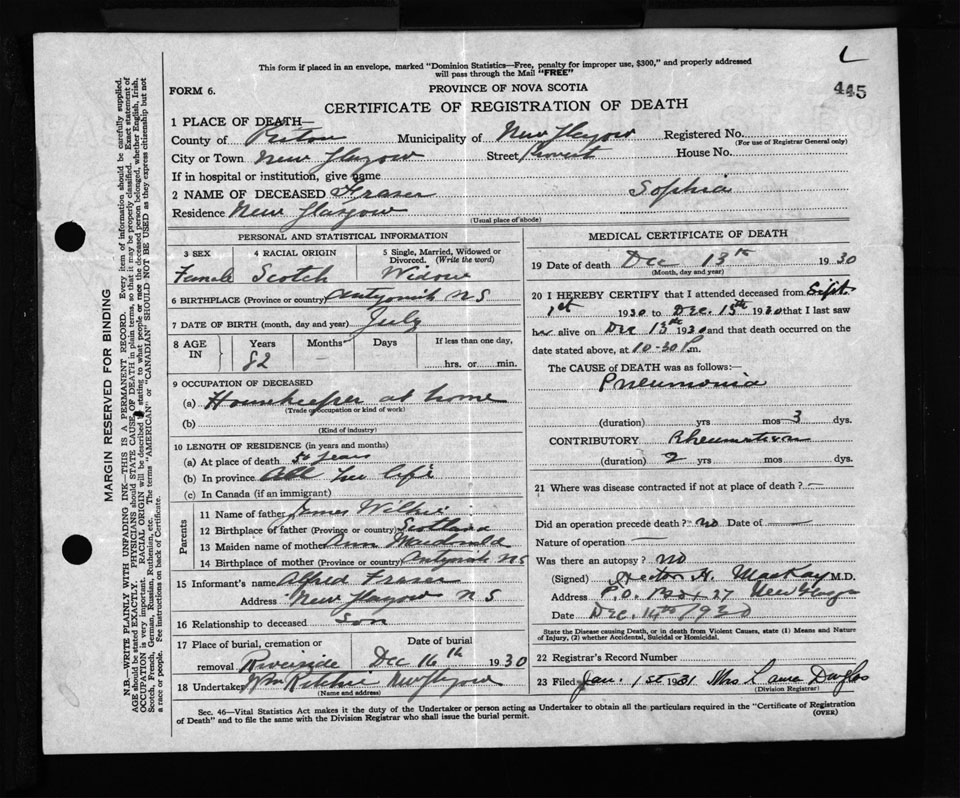 L
This form if placed in an envelope, marked "Dominion Statistics—Free, penalty for improper use, $300," and properly addressed
will pass through the Mail "FREE"
445
FORM 6.
PROVINCE OF NOVA SCOTIA
CERTIFICATE OF REGISTRATION OF DEATH
1 PLACE OF DEATH—
County of Pictou Municipality of New Glasgow Registered No.
(For use of Registrar General only)
City or Town New Glasgow Street House No.
If in hospital or institution, give name
2 NAME OF DECEASED Fraser Sophia
Residence New Glasgow
(Usual place of abode)
PERSONAL AND STATISTICAL INFORMATION
3 SEX 4 RACIAL ORIGIN 5 Single, Married, Widowed or
Divorced. (Write the word)
Female Scotch Widow
6 BIRTHPLACE (Province or country) Antigonish NS
7 DATE OF BIRTH (month, day and year) July
8 AGE IN Years Months Days If less than one day,
82 — hrs. or min.
9 OCCUPATION OF DECEASED
(a) Housekeeper at home
(Trade or occupation or kind of work)
(b)
(Kind of industry)
10 LENGTH OF RESIDENCE (in years and months)
(a) At place of death 50 years
(b) In province All her life
(c) In Canada (if an immigrant)
Parents
11 Name of father James Wilkie
12 Birthplace of father (Province or country) Scotland
13 Maiden name of mother Ann Macdonald
14 Birthplace of mother (Province or country) Antigonish NS
15 Informant's name Alfred Fraser
Address New Glasgow N S
16 Relationship to deceased Son
17 Place of burial, cremation or Date of burial
removal Riverside Dec 16th 1930
18 Undertaker Wm Ritchie New Glasgow
(Name and address)
MEDICAL CERTIFICATE OF DEATH
19 Date of death Dec 13th 1930
(Month, day and year)
20 I HEREBY CERTIFY that I attended deceased from Sept.
1st 1930 to Dec. 13th 1930 that I last saw
her alive on Dec 13th 1930 and that death occurred on the
date stated above, at 10-30 P.m.
The CAUSE OF DEATH was as follows:—
Pneumonia
(duration) yrs mos 3 dys.
CONTRIBUTORY Rheumatism
(duration) 2 yrs mos dys.
21 Where was disease contracted if not at place of death? —
Did an operation precede death? no Date of —
Nature of operation —
Was there an autopsy? no
(Signed) Hector H. MacKay M.D.
Address P.O. Box 27 New Glasgow
Date Dec. 14th 1930
State the Disease causing Death, or in death from Violent Causes, state (1) Means and Nature
of Injury, (2) whether Accidental, Suicidal or Homicidal.
22 Registrar's Record Number
23 Filed Jan. 1st 1931 Mrs Douglas
(Division Registrar)
Sec. 46—Vital Statistics Act makes it the duty of the Undertaker or person acting as Undertaker to obtain all the particulars required in the "Certificate of Registration
of Death" and to file the same with the Division Registrar who shall issue the burial permit.
(OVER)
MARGIN RESERVED FOR BINDING
N.B.—WRITE PLAINLY WITH UNFADING INK—THIS IS A PERMANENT RECORD. Every item of information should be carefully supplied.
AGE should be stated EXACTLY. PHYSICIANS should STATE CAUSE OF DEATH in plain terms, so that it may be properly classified. Exact statement of
OCCUPATION is very important. RACIAL ORIGIN will be described by stating to what people or race the deceased person belonged, whether English, Irish,
Scotch, French, German, Russian, Ruthenian, etc. The terms "AMERICAN" or "CANADIAN" SHOULD NOT BE USED as they express citizenship but not
a race or people. See instructions on back of Certificate.